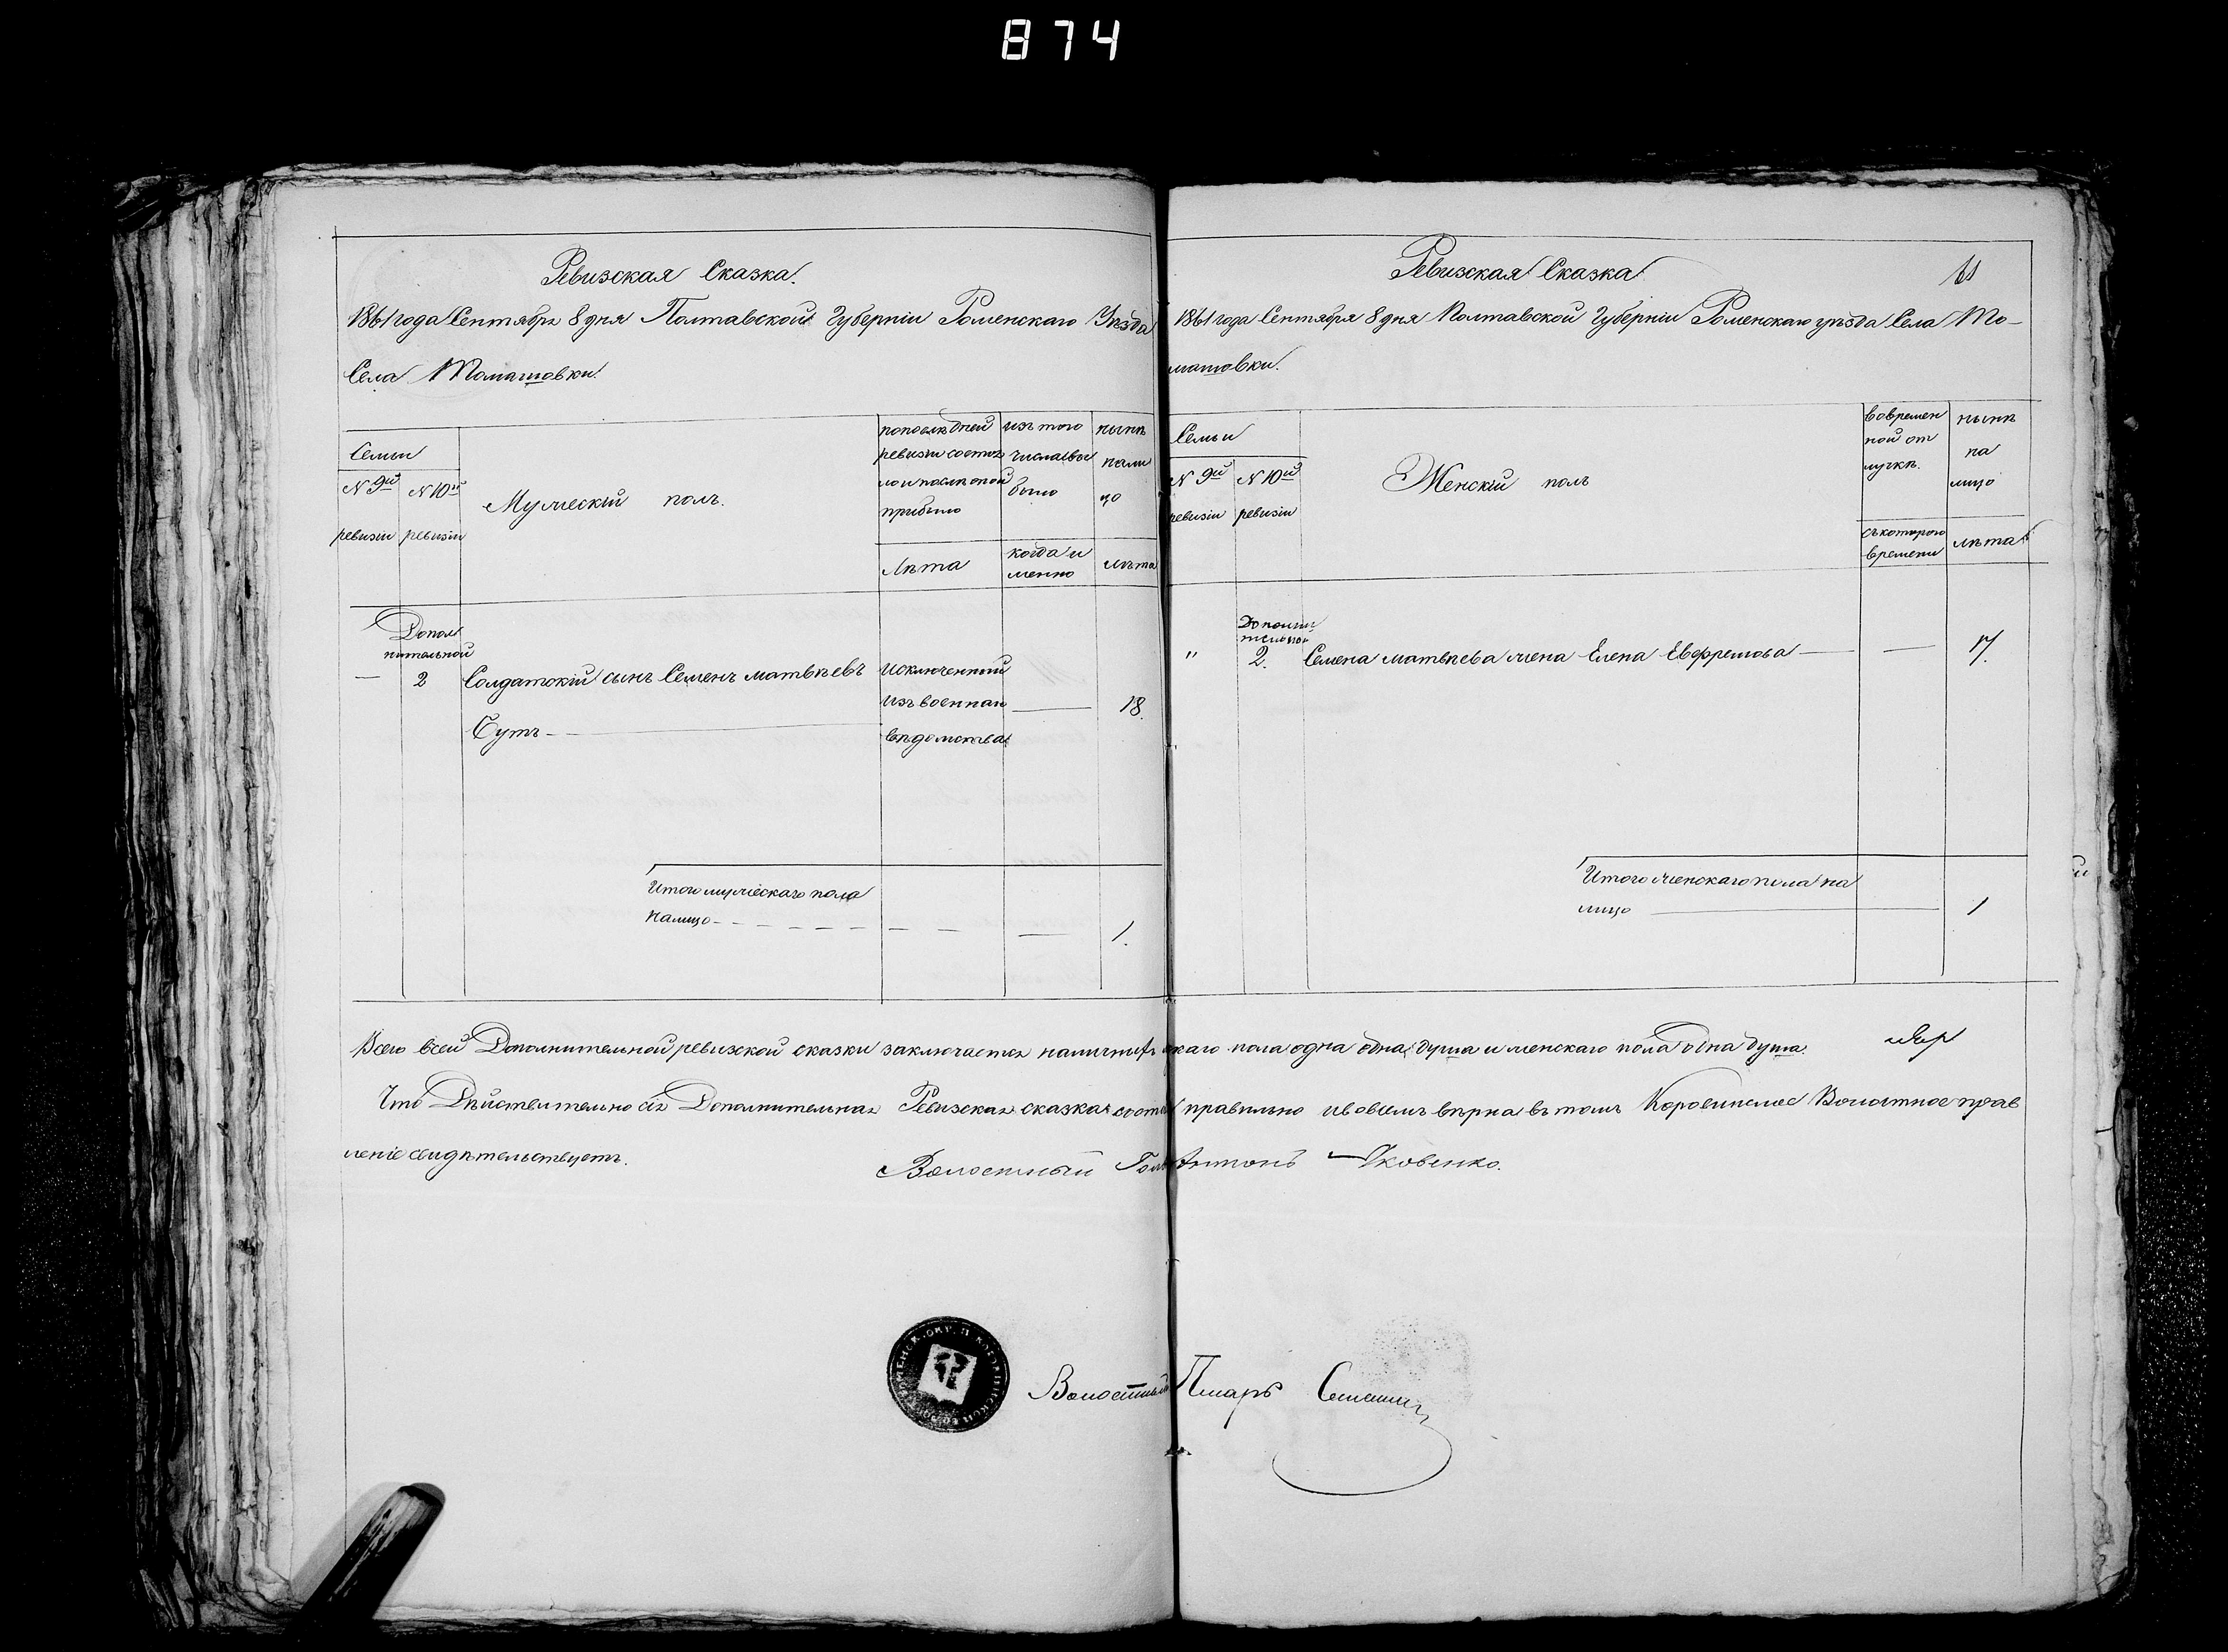 874
Ревизская Сказка.
1861 года Сентября 8 дня Полтавской Губерніи Роменскаго Уѣзда
Села Томашовки.
Семьи
№ 9й ревизіи
№ 10й ревизіи
Мужескій полъ.
по послѣдней
ревизіи состоя
ло и послѣ оной
прибыло
Лѣта
изъ того
числа вы
было
когда и
менно
нынѣ
нали
цо
лѣта
Допол
нительной
— 2 Солдатскій сынъ Семенъ Матвѣевъ
Сутъ —
Исключенный
изъ военнаго
вѣдомства
— 18.
Итого мужескаго пола
налицо — — 1.
Ревизская Сказка
61
1861 года Сентября 8 дня Полтавской Губерніи Роменскаго уѣзда Села То-
машовки.
Семьи
№ 9й ревизіи
№ 10й ревизіи
Женскій полъ
во времен
ной от
лучкѣ.
съ котораго
времени
нынѣ
на
лицо
лѣта
Дополни
тельной
" 2. Семена Матвѣева жена Елена Ефремова — — 17.
Итого женскаго пола на
лицо — 1
Всего всей Дополнительной ревизской сказки заключается наличныхъ скаго пола одна одна душа и женскаго пола одна душа.
Что Дѣйствительно сія Дополнительная Ревизская сказка состав правильно и во всемъ вѣрна въ томъ Коровинское Волостное прав
леніе свидѣтельствуетъ.
Волостный Голо Антонъ Яковенко.
Волостный Писарь